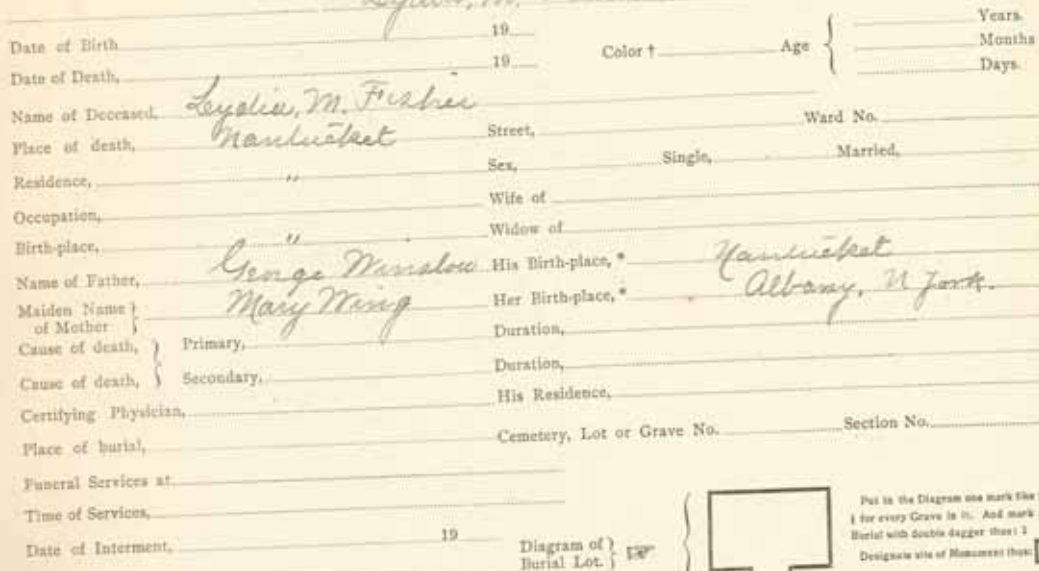 Lydia, M.
Date of Birth 19 Color † Age { Years.
Months
Date of Death, 19 Days.
Name of Deceased, Lydia, M. Fisher
Place of death, Nantucket Street, Ward No.
Residence, " Sex, Single, Married,
Occupation, Wife of
Birth-place, " Widow of
Name of Father, George Winslow His Birth-place, * Nantucket
Maiden Name of Mother } Mary Wing Her Birth-place, * Albany, N York.
Cause of death, } Primary, Duration,
Cause of death, } Secondary, Duration,
Certifying Physician, His Residence,
Place of burial, Cemetery, Lot or Grave No. Section No.
Funeral Services at
Time of Services,
Date of Interment, 19 Diagram of Burial Lot. } ☞ {
Put in the Diagram one mark like
† for every Grave in it. And mark
Burial with double dagger thus: ‡
Designate site of Monument thus: